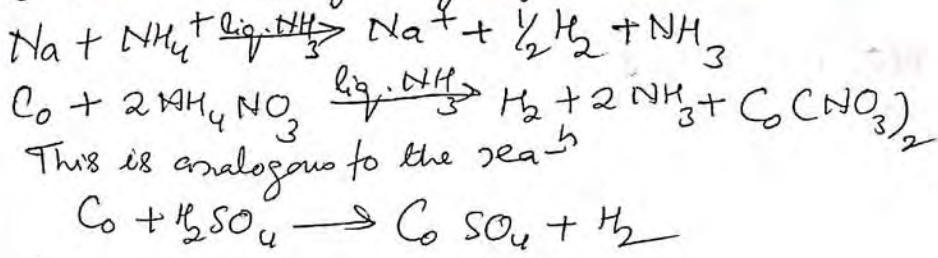 Na + NH₄⁺ liq. NH₃→ Na⁺ + ½ H₂ + NH₃
Co + 2 NH₄NO₃ liq. NH₃→ H₂ + 2 NH₃ + Co(NO₃)₂
This is analogous to the reaⁿ
Co + H₂SO₄ → CoSO₄ + H₂